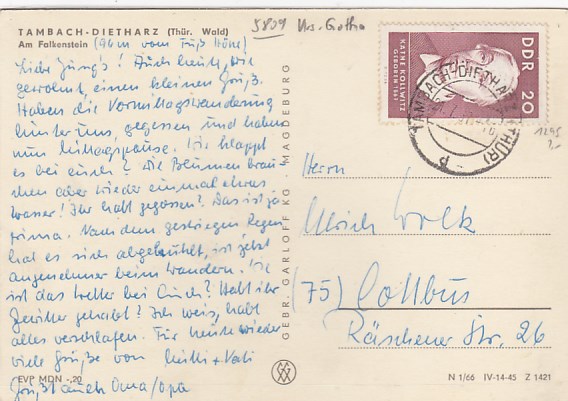 TAMBACH-DIETHARZ (Thür. Wald)
Am Falkenstein (96m vom Fuß Höhe)
5809 Krs. Gotha
Liebe Jung's! Auch heute, wie
gewohnt, einen kleinen Gruß.
Haben die Vormittagswanderung
hinter uns, gegessen und haben
nun Mittagspause. Wie klappt
es bei euch? Die Blumen brau-
chen aber wieder einmal etwas
Wasser! Ihr habt gegossen? Das ist ja
prima. Nach dem gestrigen Regen
hat es sich abgekühlt, ist jetzt
angenehmer beim Wandern. Wie
ist das Wetter bei Euch? Habt ihr
Gewitter gehabt? Ich weiß, habt
alles verschlafen. Für heute wieder
viele Grüße von Mutti + Vati
Grüßt auch Oma/Opa
EVP MDN -,20
GEBR. GARLOFF KG · MAGDEBURG
DDR 20
KÄTHE KOLLWITZ
GEBOREN 1867
TAMBACH-DIETHARZ (THÜR)
1295
Herrn
Ulrich Wolk
(75) Cottbus
Räschener Str. 26
N 1/66 IV-14-45 Z 1421